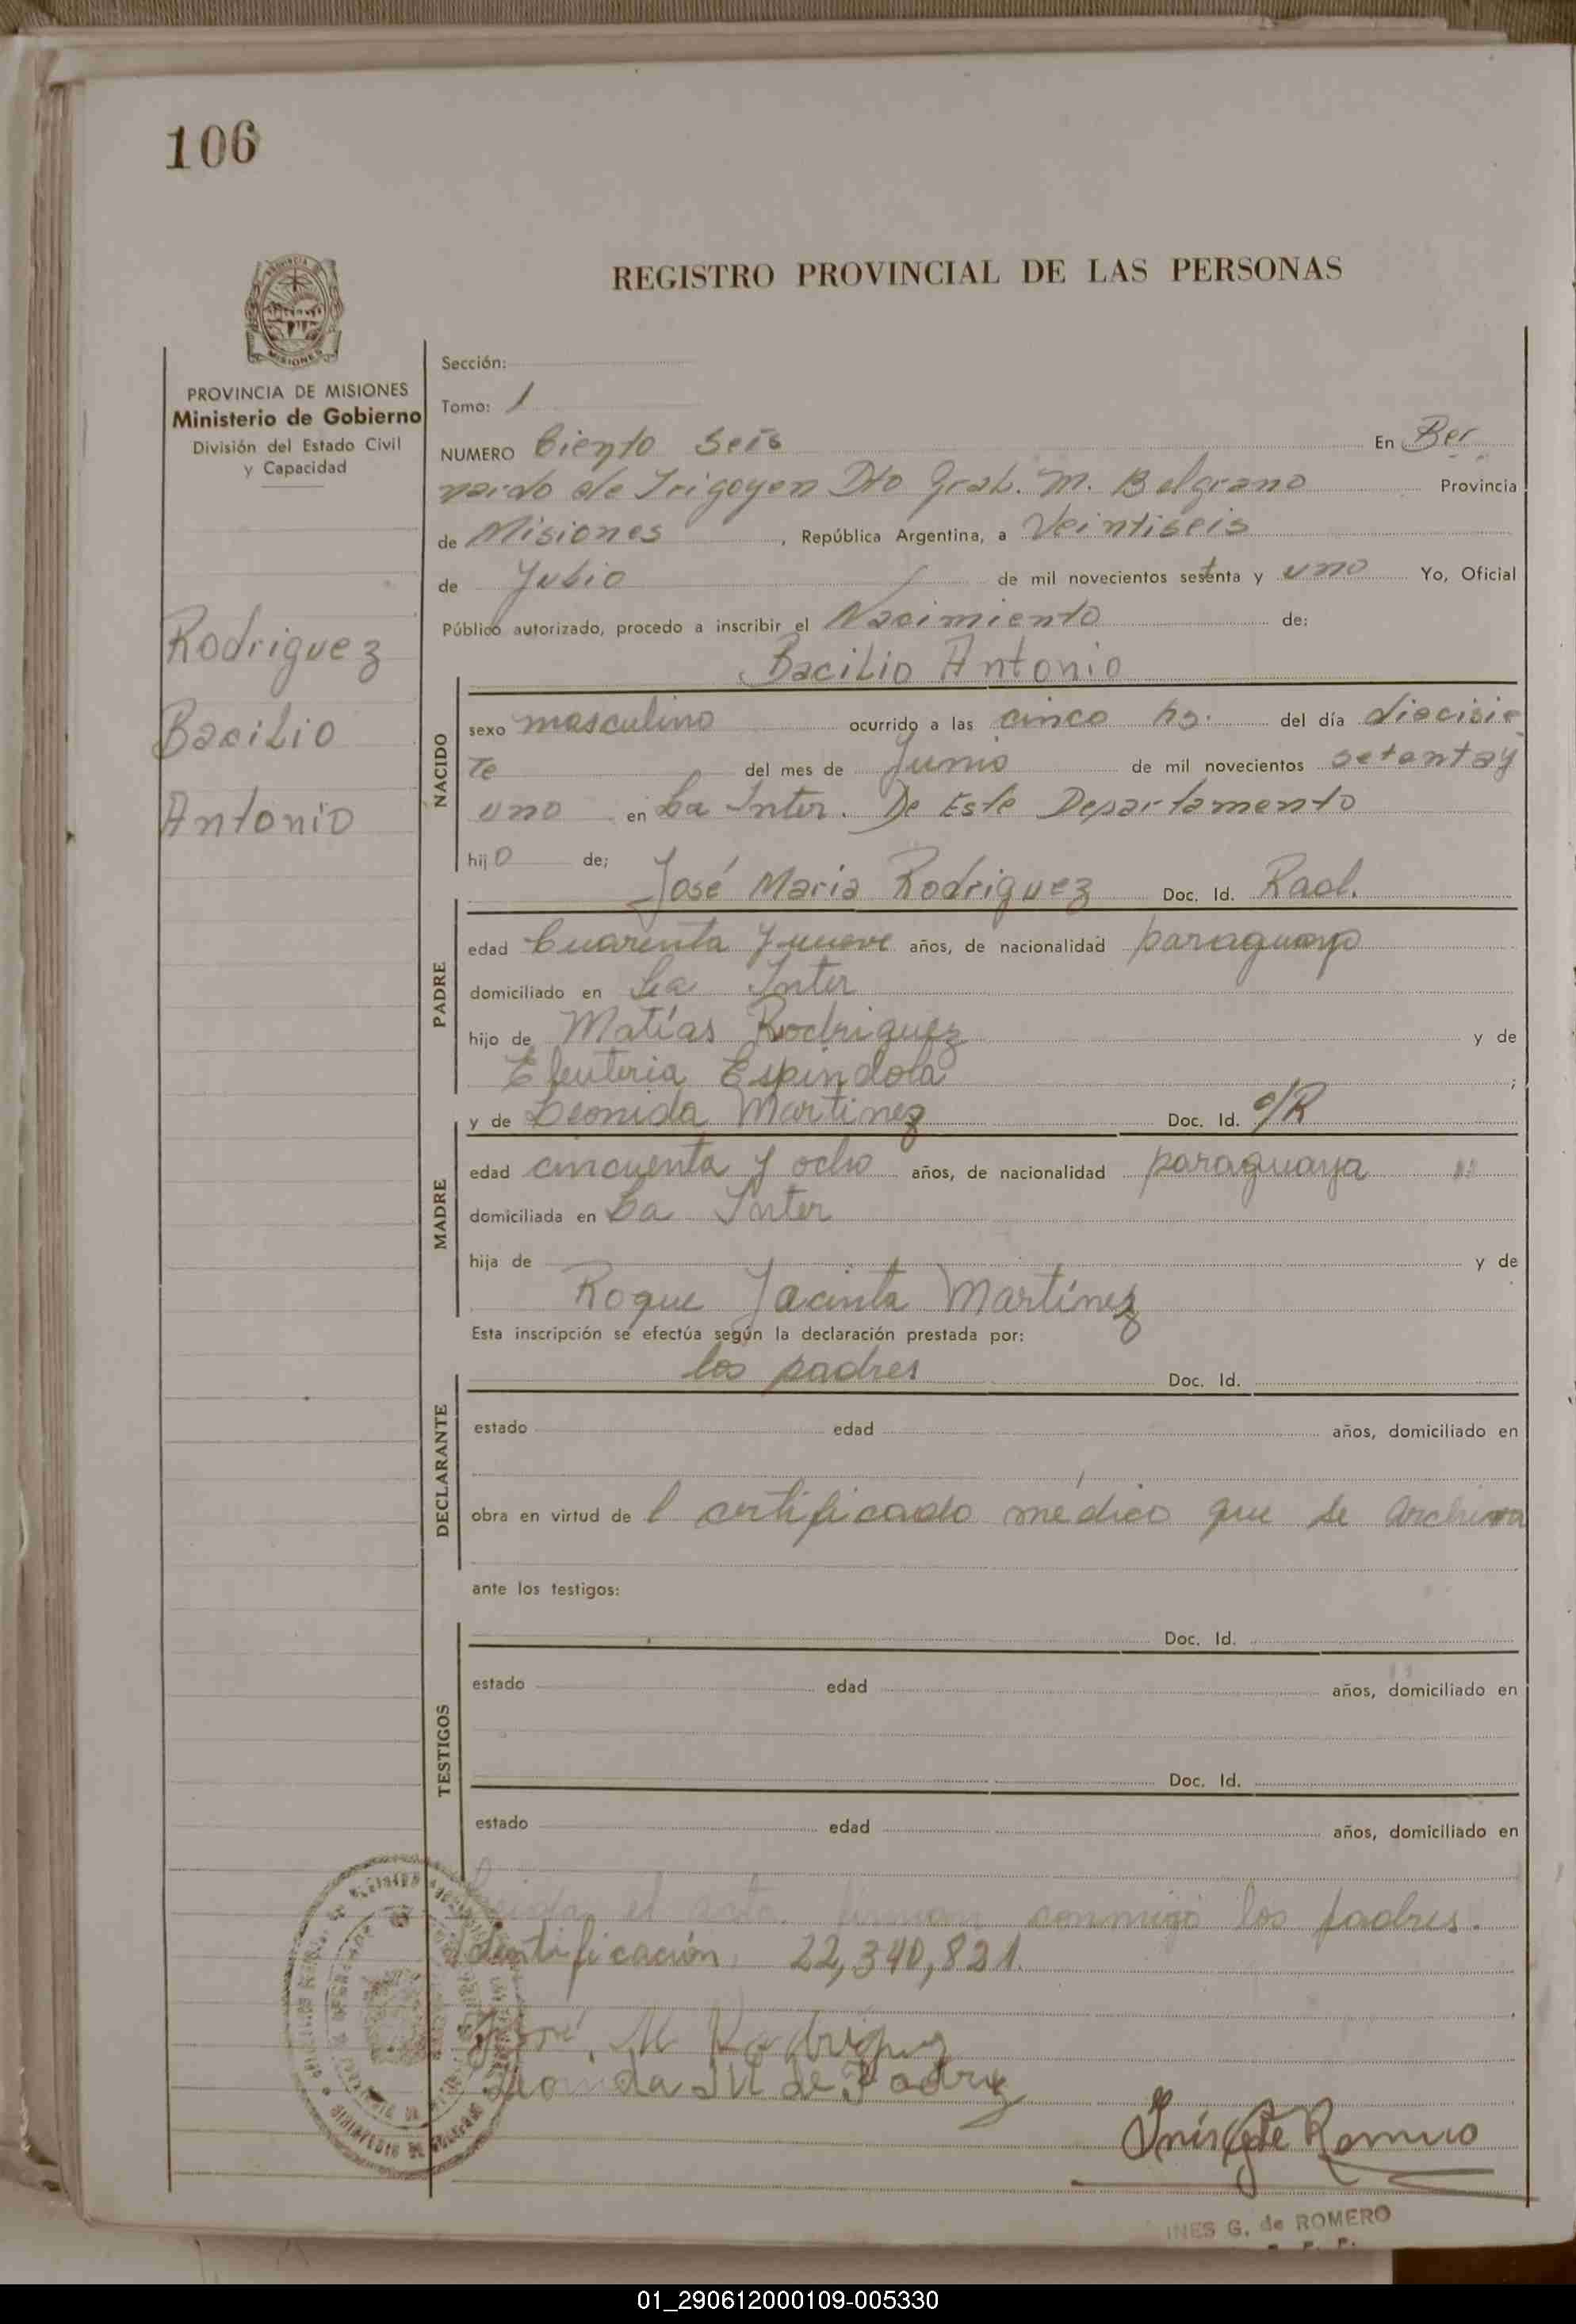 106
REGISTRO PROVINCIAL DE LAS PERSONAS
MISIONES
PROVINCIA DE MISIONES
Ministerio de Gobierno
División del Estado Civil
y Capacidad
Rodriguez
Bacilio
Antonio
Sección:
Tomo: 1
NUMERO Ciento Seis En Ber
nardo de Irigoyen Dto Gral. M. Belgrano Provincia
de Misiones, República Argentina, a Veintiseis
de Julio de mil novecientos setenta y uno Yo, Oficial
Público autorizado, procedo a inscribir el Nacimiento de:
Bacilio Antonio
NACIDO
sexo masculino ocurrido a las cinco hs. del día diecisie
te del mes de Junio de mil novecientos setenta y
uno en La Inter. De Este Departamento
hijo de;
José Maria Rodriguez Doc. Id. Rad.
PADRE
edad Cuarenta y nueve años, de nacionalidad paraguayo
domiciliado en La Inter
hijo de Matías Rodriguez y de
Eleuteria Espindola ;
y de Leonida Martinez Doc. Id. c/R
MADRE
edad cincuenta y ocho años, de nacionalidad paraguaya
domiciliada en La Inter
hija de y de
Roque Jacinta Martínez
Esta inscripción se efectúa según la declaración prestada por:
los padres Doc. Id.
DECLARANTE
estado edad años, domiciliado en
obra en virtud de l certificado médico que se archiva
ante los testigos:
Doc. Id.
TESTIGOS
estado edad años, domiciliado en
Doc. Id.
estado edad años, domiciliado en
Leida el acta firman conmigo los padres.
Identificación 22,340,821.
José M Rodriguez
Leonida M de Rodriz
Inés G de Romero
INES G. de ROMERO
01_290612000109-005330